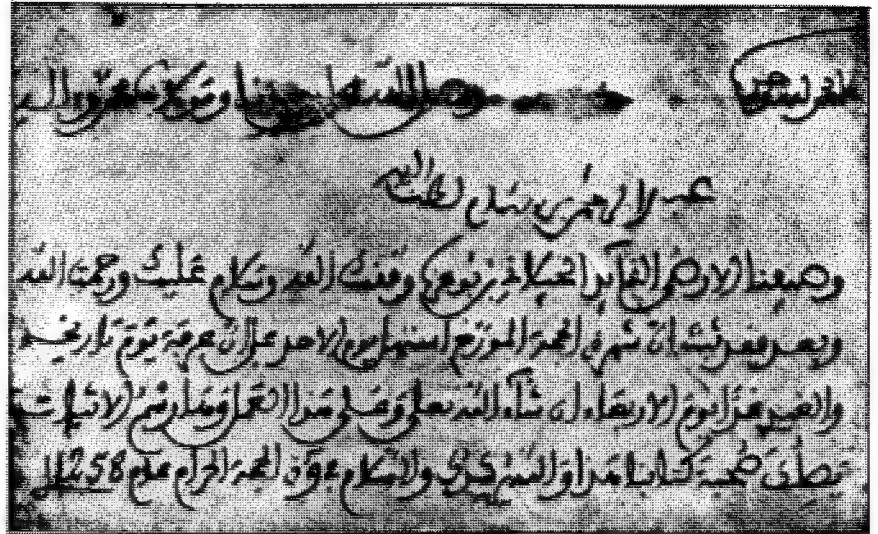 وصلى الله على سيدنا ومولانا محمد وآله
عبد الرحمن لطف الله
وصيفنا الارضى القايد الجيلاني بن بوعزى وفقك الله وسلام عليك ورحمت الله
وبعد فقد ثبت ان شهر ذي الحجة استهل يوم الاحد على ان عرفة يوم تاريخه
والعيد غدا يوم الاربعاء ان شاء الله تعلى وعلى هذا العمل وها رسم الاثبات
يصلك صحبة كتابنا هذا والله والسلام ذي الحجة الحرام عام 1258